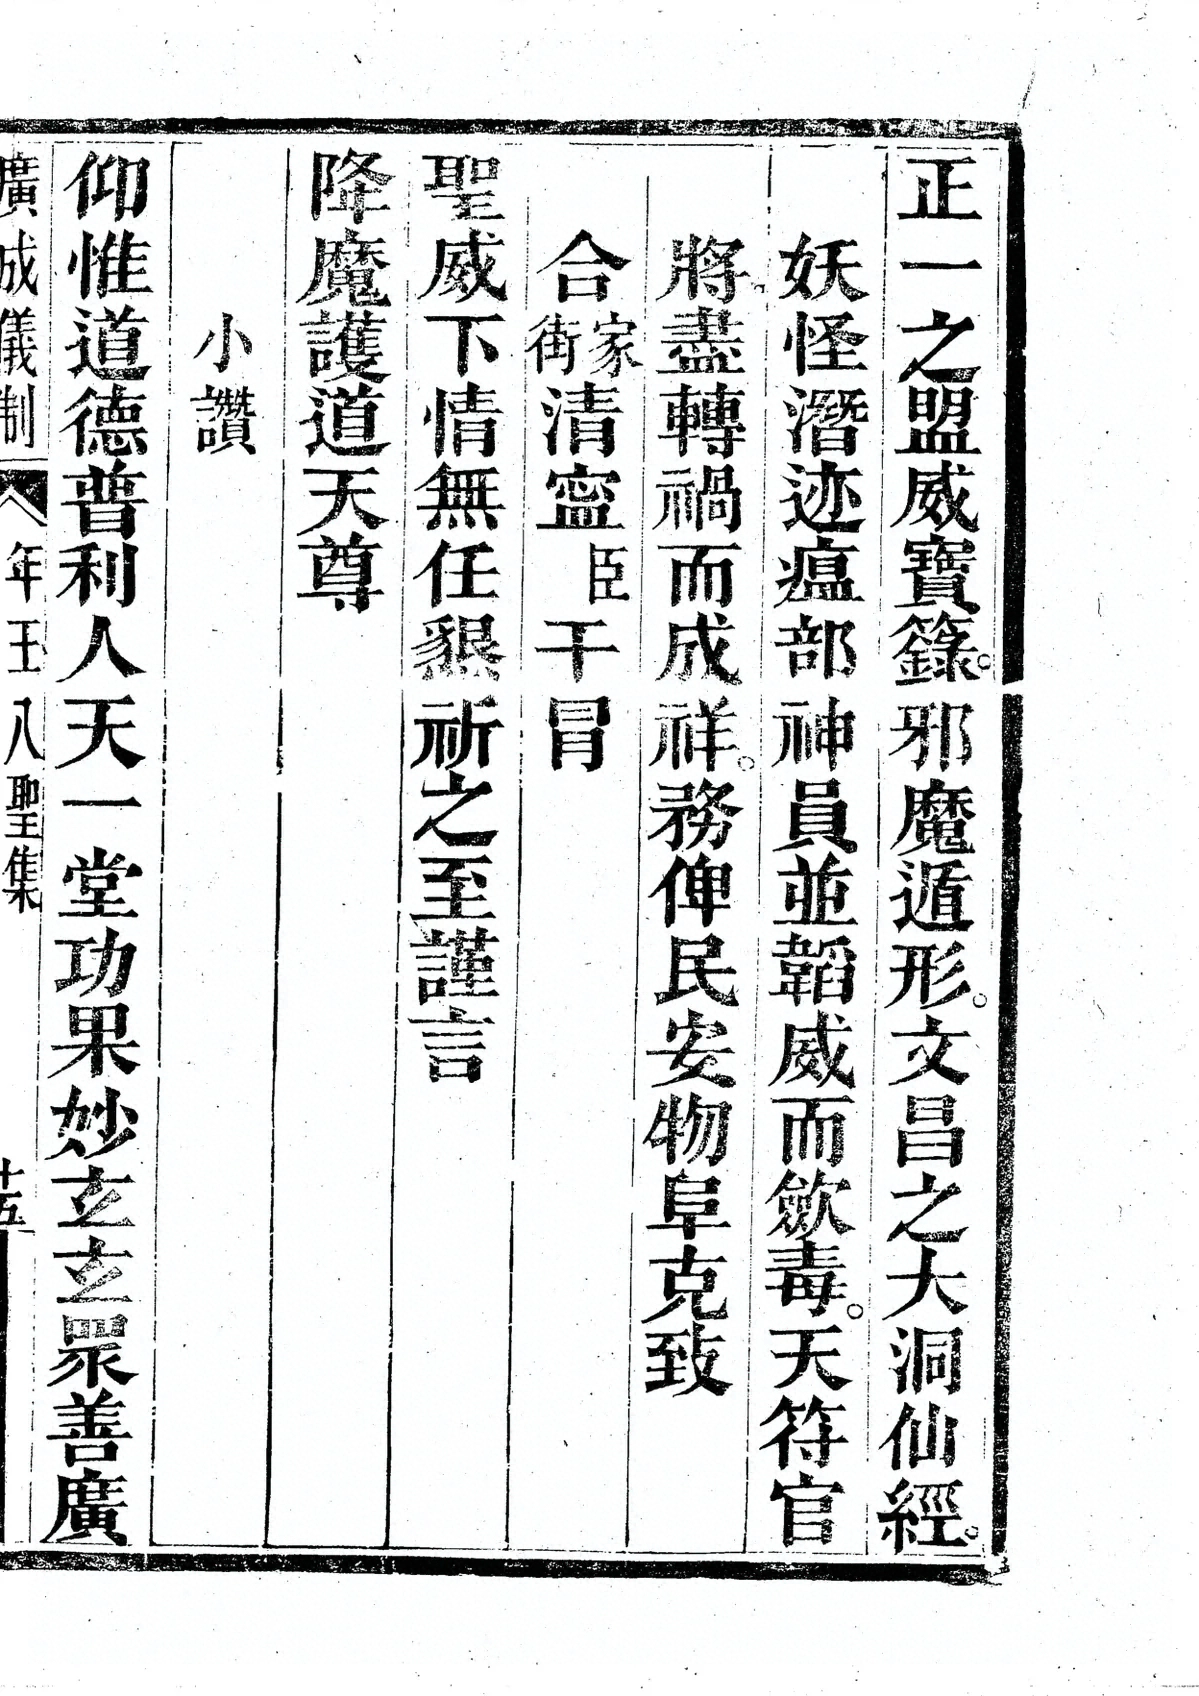 正一之盟威寶籙。邪魔遁形。文昌之大洞仙經。
妖怪潛迹瘟部神員並韜威而歛毒。天符官
將。盡轉禍而成祥。務俾民安物阜克致
合家街清寧臣干冒
聖威下情無任懇祈之至謹言
降魔護道天尊
小讚
仰惟道德普利人天一堂功果妙玄玄眾善廣
廣成儀制 年王八聖集 十五